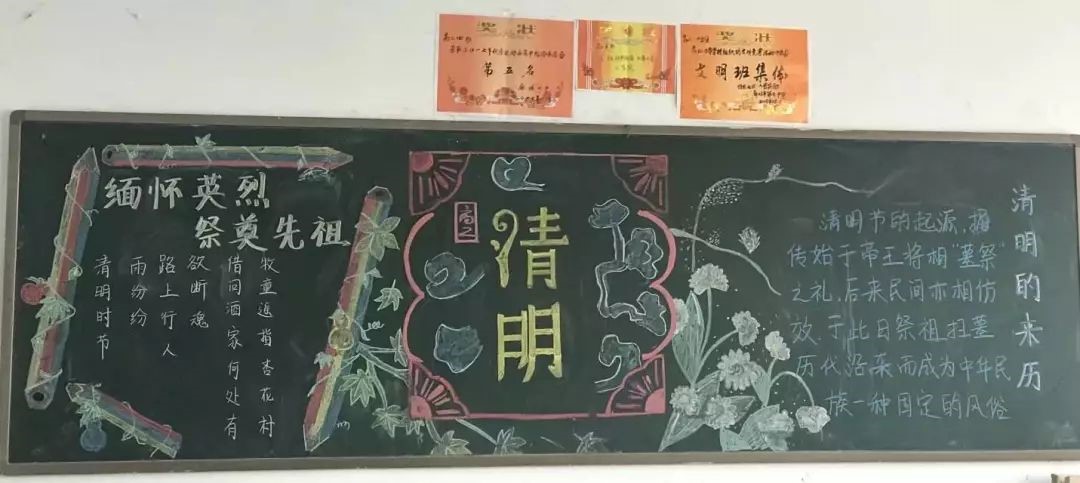 奖状
第五名
奖状
文明班集体
缅怀英烈
祭奠先祖
清明时节
雨纷纷
路上行人
欲断魂
借问酒家何处有
牧童遥指杏花村
清明
清明的来历
清明节的起源,据
传始于帝王将相“墓祭”
之礼,后来民间亦相仿
效,于此日祭祖扫墓
历代沿袭而成为中华民
族一种固定的风俗